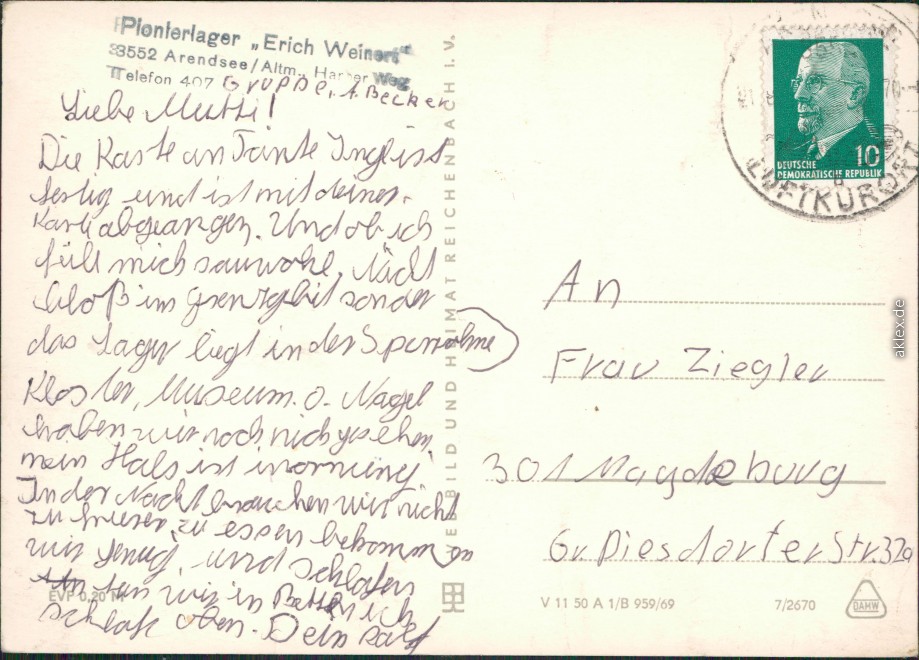 Pionierlager „Erich Weinert"
3552 Arendsee/Altm., Harper Weg
Telefon 407 Gruppe, A. Becker
Liebe Mutti!
Die Karte an Tante Inge ist
fertig und ist mit deiner
Karte abgegangen. Und ob ich
füll mich sauwohl. Nicht
bloß im Grenzgebit sonder
das Lager liegt in der Sperrzohne
Kloster, Museum o. Nagel
haben wir noch nich gesehen,
mein Hals ist inornung.
In der Nacht brauchen wir nicht
zu frieren, zu essen bekommen
wir genug, und schlafen
tun wir in Betten ich
schlafe oben. Dein Ralf
EVP 0,20 M
VEB BILD UND HEIMAT REICHENBACH I. V.
DEUTSCHE
DEMOKRATISCHE REPUBLIK
10
LUFTKURORT
An
Frau Ziegler
301 Magdeburg
Gr. Diesdorfer Str. 32a
V 11 50 A 1/B 959/69
7/2670
DAHW
aklex.de